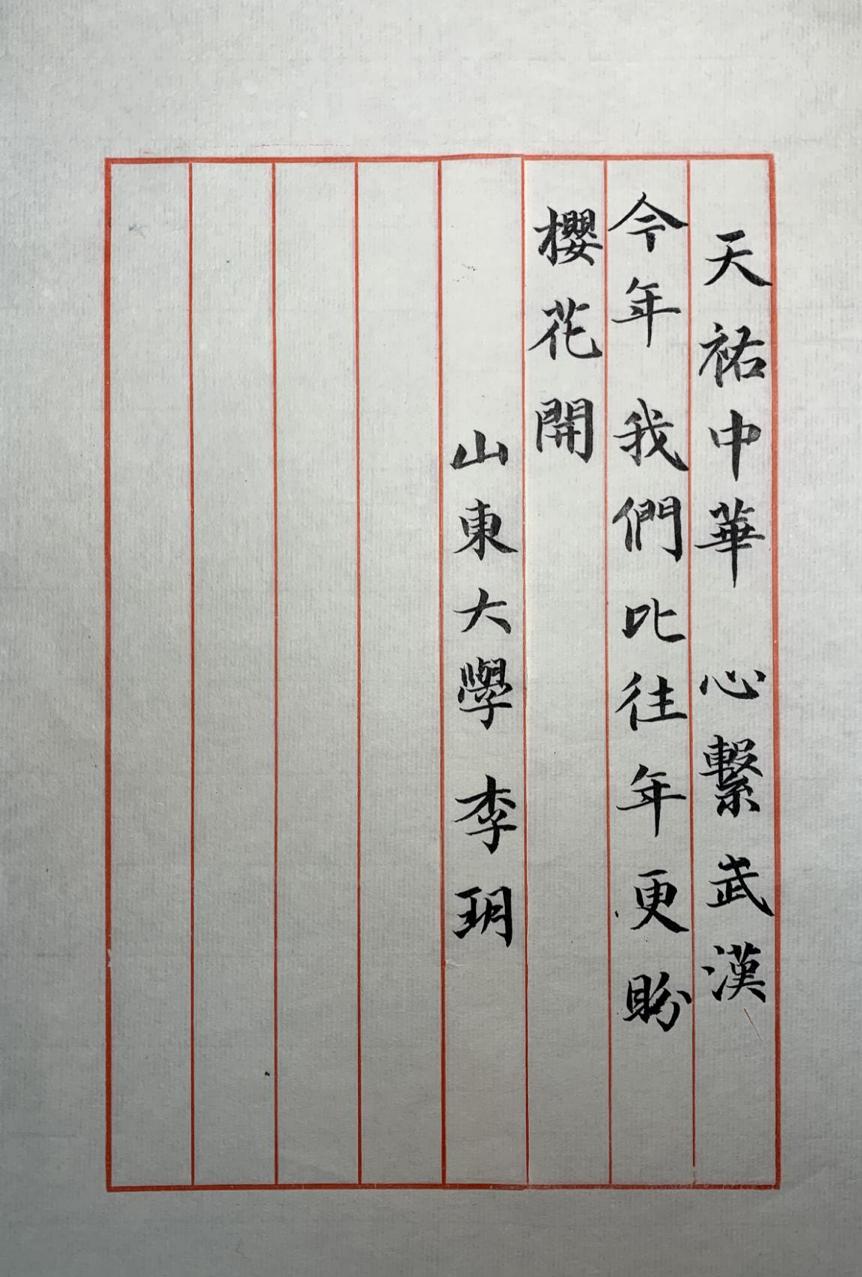 天祐中華 心繫武漢
今年 我們比往年更盼
櫻花開
山東大學 李玥